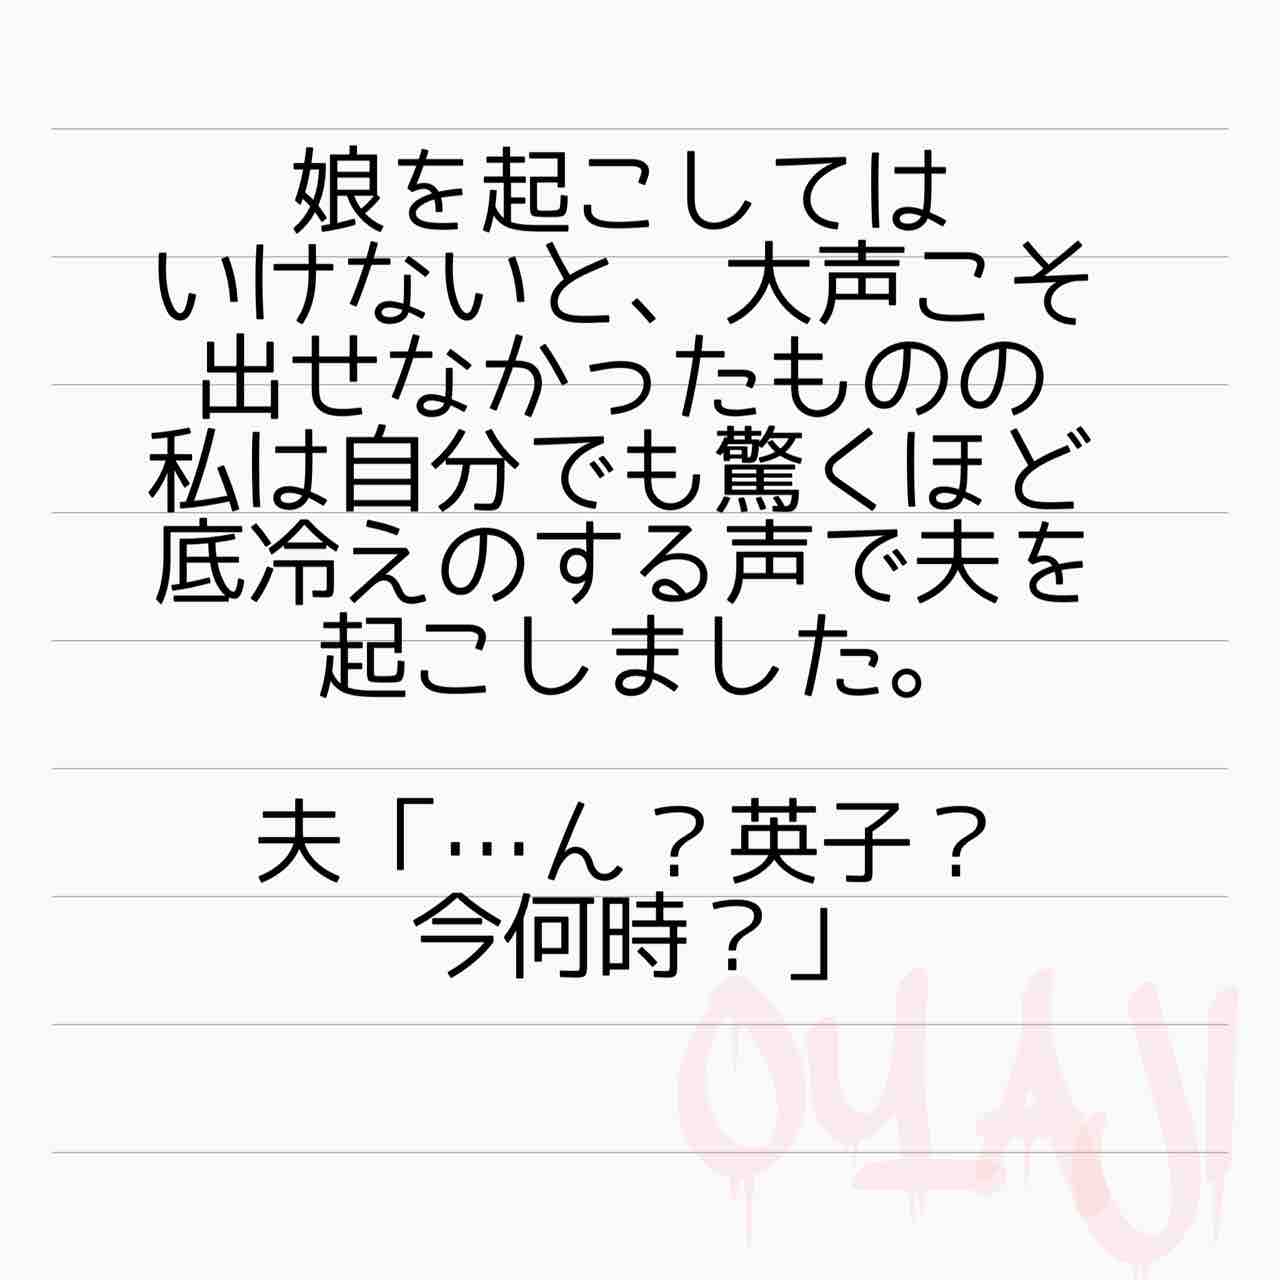 娘を起こしては
いけないと、大声こそ
出せなかったものの
私は自分でも驚くほど
底冷えのする声で夫を
起こしました。
夫「…ん？英子？
今何時？」
OYAJI